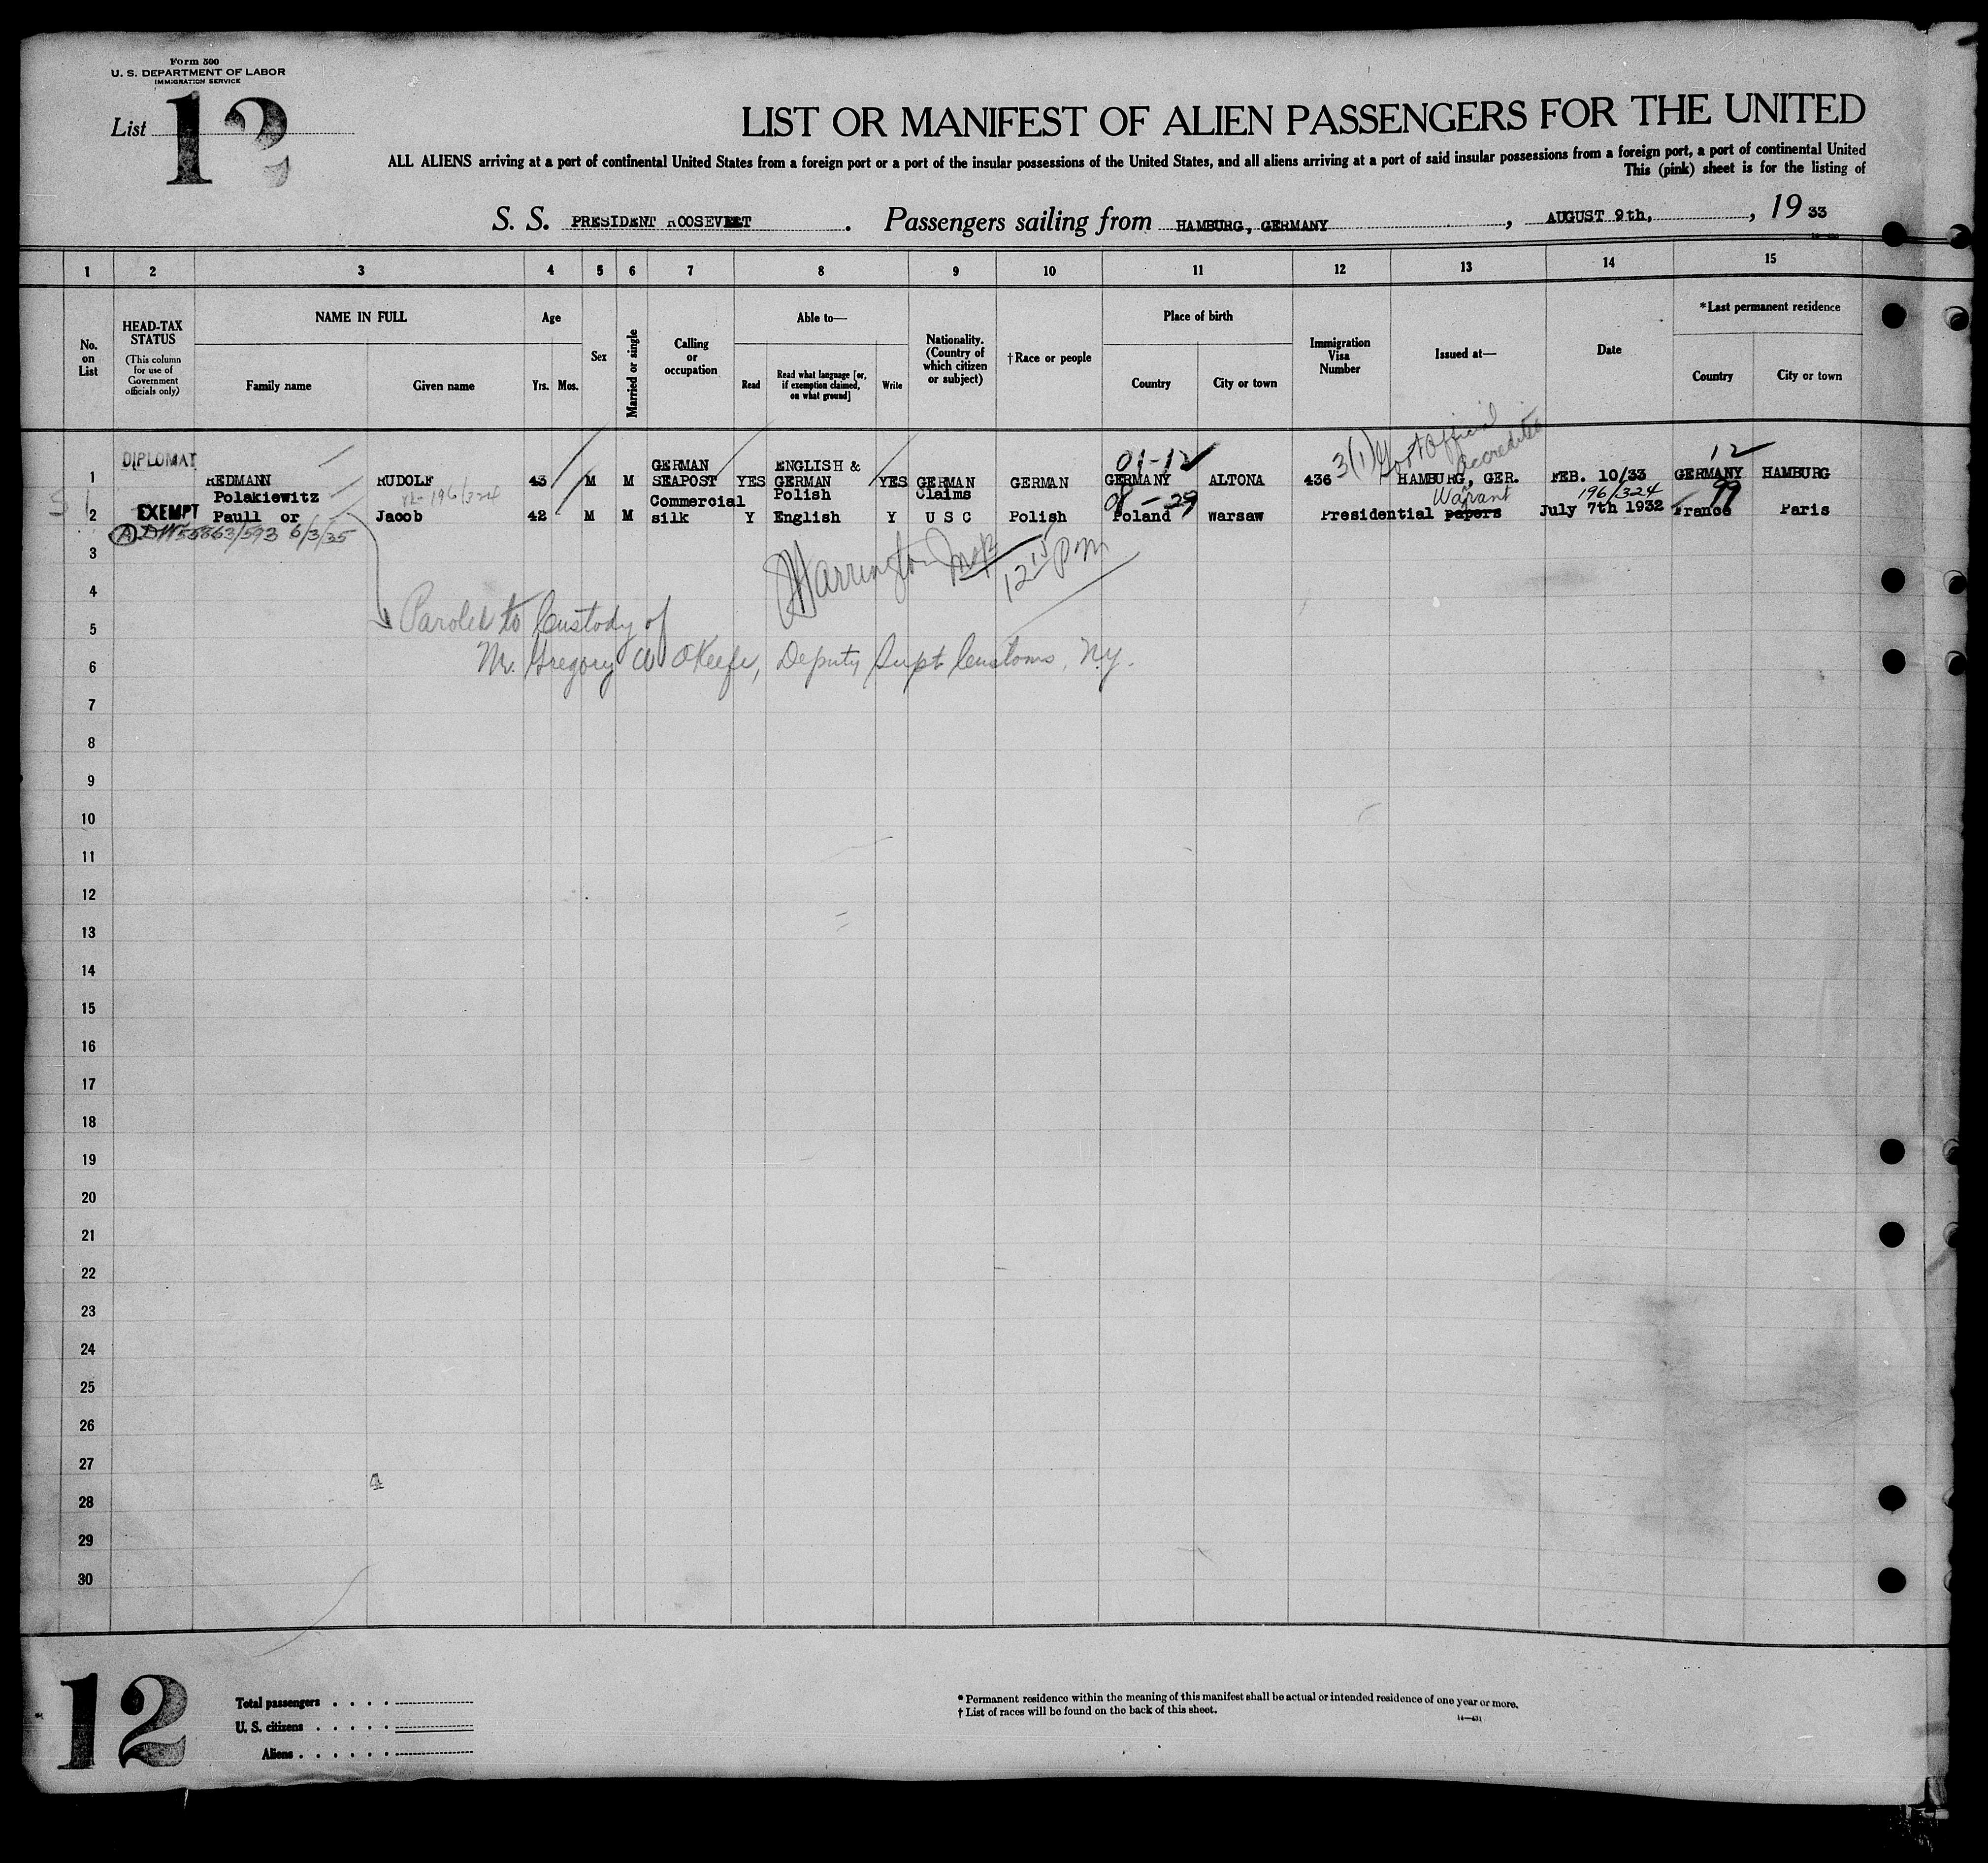 Form 500
U. S. DEPARTMENT OF LABOR
IMMIGRATION SERVICE
List 12
LIST OR MANIFEST OF ALIEN PASSENGERS FOR THE UNITED
ALL ALIENS arriving at a port of continental United States from a foreign port or a port of the insular possessions of the United States, and all aliens arriving at a port of said insular possessions from a foreign port, a port of continental United
This (pink) sheet is for the listing of
S. S. PRESIDENT ROOSEVELT. Passengers sailing from HAMBURG, GERMANY, AUGUST 9th, , 19 33
1 2 3 4 5 6 7 8 9 10 11 12 13 14 15
No. on List
HEAD-TAX STATUS
(This column for use of Government officials only)
NAME IN FULL
Family name Given name
Age
Yrs. Mos.
Sex
Married or single
Calling or occupation
Able to—
Read
Read what language [or, if exemption claimed, on what ground]
Write
Nationality. (Country of which citizen or subject)
†Race or people
Place of birth
Country City or town
Immigration Visa Number
Issued at—
Date
*Last permanent residence
Country City or town
3(1) Gov't Official
Accredited
DIPLOMAT
GERMAN ENGLISH & 01-12 12
1 REDMANN RUDOLF 43 M M SEAPOST YES GERMAN YES GERMAN GERMAN GERMANY ALTONA 436 HAMBURG, GER. FEB. 10/33 GERMANY HAMBURG
Polakiewitz 196/324 Commercial Polish Claims 9-29 Warant 196/324 99
2 EXEMPT Paull or Jacob 42 M M silk Y English Y U S C Polish Poland Warsaw Presidential papers July 7th 1932 France Paris
A 55863/593 6/3/35
3
Warrington Insp 12 15 PM
4
5 Paroled to Custody of
6 Mr. Gregory W OKeefe, Deputy Supt Customs, N.Y.
7
8
9
10
11
12
13
14
15
16
17
18
19
20
21
22
23
24
25
26
27
4
28
29
30
12
Total passengers . . . .
U. S. citizens . . . . .
Aliens . . . . . .
* Permanent residence within the meaning of this manifest shall be actual or intended residence of one year or more.
† List of races will be found on the back of this sheet.